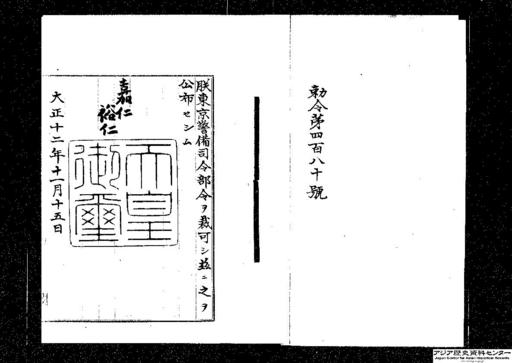 勅令第四百八十號
朕東京警備司令部令ヲ裁可シ茲ニ之ヲ
公布セシム
嘉仁
裕仁
天皇
御璽
大正十二年十一月十五日
アジア歴史資料センター
Japan Center for Asian Historical Records